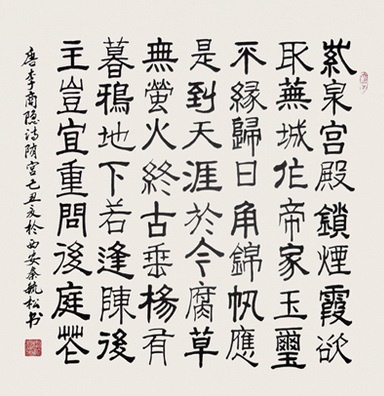 紫泉宮殿鎖煙霞欲
取蕪城作帝家玉璽
不緣歸日角錦帆應
是到天涯於今腐草
無螢火終古垂楊有
暮鴉地下若逢陳後
主豈宜重問後庭花
唐李商隐诗隋宫己丑夏於西安秦航松书